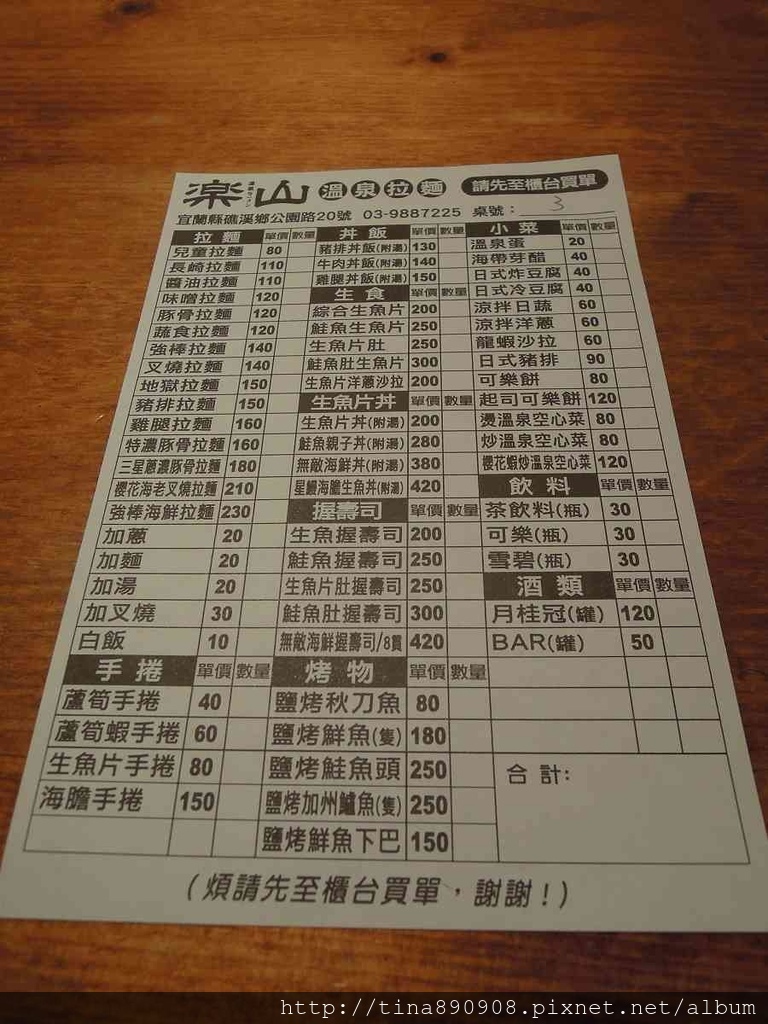 楽山 溫泉拉麵 請先至櫃台買單
宜蘭縣礁溪鄉公園路20號 03-9887225 桌號: 3
拉麵 單價 數量
兒童拉麵 80
長崎拉麵 110
醬油拉麵 110
味噌拉麵 120
豚骨拉麵 120
蔬食拉麵 120
強棒拉麵 140
叉燒拉麵 140
地獄拉麵 150
豬排拉麵 150
雞腿拉麵 160
特濃豚骨拉麵 160
三星蔥濃豚骨拉麵 180
櫻花海老叉燒拉麵 210
強棒海鮮拉麵 230
加蔥 20
加麵 20
加湯 20
加叉燒 30
白飯 10
手捲 單價 數量
蘆筍手捲 40
蘆筍蝦手捲 60
生魚片手捲 80
海膽手捲 150
丼飯 單價 數量
豬排丼飯(附湯) 130
牛肉丼飯(附湯) 140
雞腿丼飯(附湯) 150
生食 單價 數量
綜合生魚片 200
鮭魚生魚片 250
生魚片肚 250
鮭魚肚生魚片 300
生魚片洋蔥沙拉 200
生魚片丼 單價 數量
生魚片丼(附湯) 200
鮭魚親子丼(附湯) 280
無敵海鮮丼(附湯) 380
星鰻海膽生魚丼(附湯) 420
握壽司 單價 數量
生魚握壽司 200
鮭魚握壽司 250
生魚片肚握壽司 250
鮭魚肚握壽司 300
無敵海鮮握壽司/8貫 420
烤物 單價 數量
鹽烤秋刀魚 80
鹽烤鮮魚(隻) 180
鹽烤鮭魚頭 250
鹽烤加州鱸魚(隻) 250
鹽烤鮮魚下巴 150
小菜 單價 數量
溫泉蛋 20
海帶芽醋 40
日式炸豆腐 40
日式冷豆腐 40
涼拌日蔬 60
涼拌洋蔥 60
龍蝦沙拉 60
日式豬排 90
可樂餅 80
起司可樂餅 120
燙溫泉空心菜 80
炒溫泉空心菜 80
櫻花蝦炒溫泉空心菜 120
飲料 單價 數量
茶飲料(瓶) 30
可樂(瓶) 30
雪碧(瓶) 30
酒類 單價 數量
月桂冠(罐) 120
BAR(罐) 50
合計:
(煩請先至櫃台買單,謝謝!)
http://tina890908.pixnet.net/album